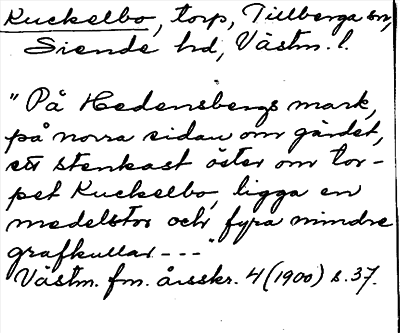 Kuckelbo, torp, Tillberga sn,
Siende hd, Västm. l.
"På Hedensbergs mark,
på norra sidan om gärdet,
ett stenkast öster om tor-
pet Kuckelbo, ligga en
medelstor och fyra mindre
grafkullar ---"
Västm. fm. årsskr. 4 (1900) s. 37.